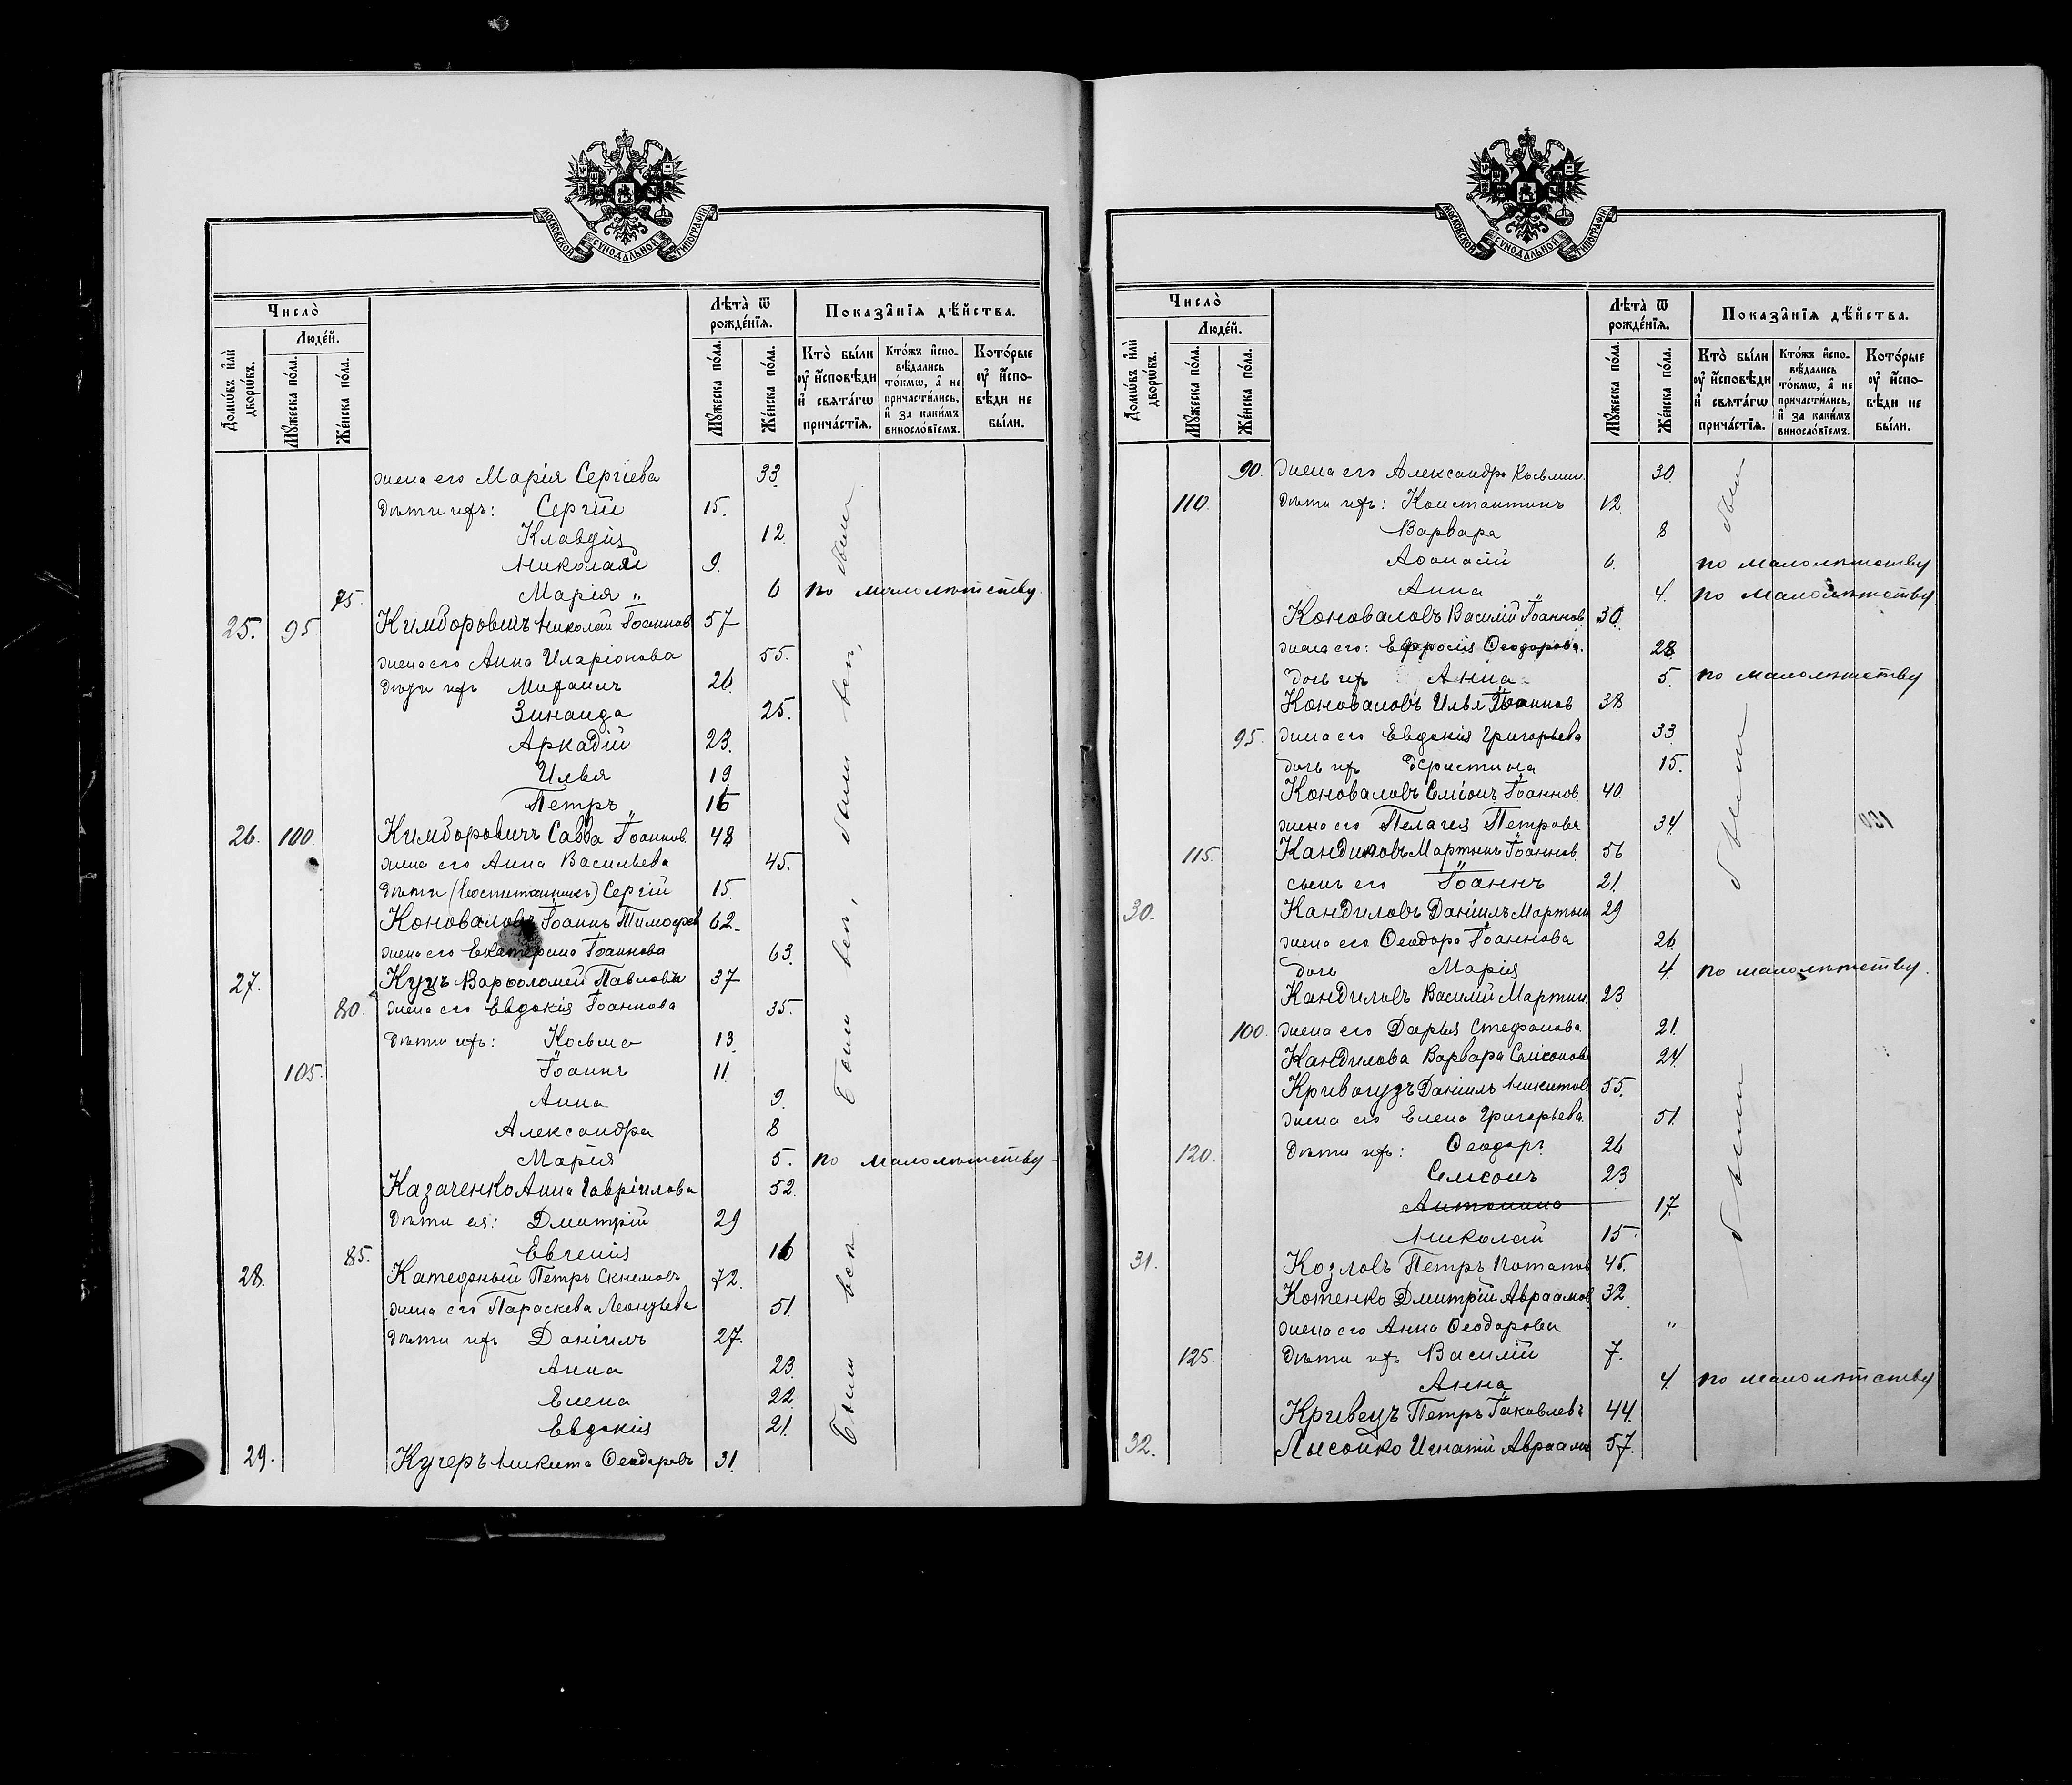 МОСКОВСКОЙ СУНОДАЛЬНОЙ ТИПОГРАФІИ
Число̀
Людéй.
Домѡ́въ и҆лѝ дворѡ́въ.
Мꙋ́жеска по́ла.
Же́нска по́ла.
Лѣта̀ ѿ рожде́нїѧ.
Мꙋ́жеска по́ла.
Же́нска по́ла.
Показа̑нїѧ дѣ́йства.
Кто̀ бы́ли ᲂу҆ и҆́сповѣди и҆ свѧта́гѡ прича́стїѧ.
Кто́жъ и҆спо-вѣ́дались то́кмѡ, а҆ не причасти́лись, и҆ за каки́мъ виносло́вїемъ.
Кото́рые ᲂу҆ и҆́спо-вѣди не бы́ли.
жена его Марія Сергіева 33.
дѣти ихъ: Сергій 15.
Клавдія 12.
Николай 9.
были
75. Марія 6 по малолѣтству.
25. 95. Кимборовичъ Николай Іоаннов 57
жена его Анна Иларіонова 55.
дѣти ихъ 26.
Зинаида 25.
Аркадій 23.
Илья 19
Петръ 16
26. 100. Кимборовичъ Савва Іоаннов. 48
жена его Анна Васильева 45.
дѣти (воспитанникъ) Сергій 15.
Коноваловъ Іоаннъ Тимофеев 62.
жена его Екатерина Іоаннова 63.
27. Куцъ Варфоломей Павловъ 37
80. жена его Евдокія Іоаннова 35.
дѣти ихъ: Косьма 13.
105. Іоаннъ 11.
Анна 9.
Александра 8
были всѣ, были всѣ,
Марія 5. по малолѣтству
Казаченко Анна Гавріилова 52.
дѣти ея: Дмитрій 29
85. Евгенія 16
28. Катефный Петръ 72.
жена его Параскева Леонтьева 51.
дѣти ихъ Даніилъ 27.
Анна 23.
Елена 22.
Евдокія 21.
были всѣ
29. Кучеръ Никита Ѳеодоровъ 31.
МОСКОВСКОЙ СУНОДАЛЬНОЙ ТИПОГРАФІИ
Число̀
Людéй.
Домѡ́въ и҆лѝ дворѡ́въ.
Мꙋ́жеска по́ла.
Же́нска по́ла.
Лѣта̀ ѿ рожде́нїѧ.
Мꙋ́жеска по́ла.
Же́нска по́ла.
Показа̑нїѧ дѣ́йства.
Кто̀ бы́ли ᲂу҆ и҆́сповѣди и҆ свѧта́гѡ прича́стїѧ.
Кто́жъ и҆спо-вѣ́дались то́кмѡ, а҆ не причасти́лись, и҆ за каки́мъ виносло́вїемъ.
Кото́рые ᲂу҆ и҆́спо-вѣди не бы́ли.
90. жена его Александра Косьмин. 30.
110. дѣти ихъ: Константинъ 12.
Варвара 8
были
Аѳанасій 6. по малолѣтству
Анна 4. по малолѣтству
Коноваловъ Василій Іоаннов. 30.
жена его: Ефросія Ѳеодорова. 28.
дочь ихъ Анна 5. по малолѣтству
Коноваловъ Илья Іоаннов 38
95. жена его Евдокія Григорьева 33.
дочь ихъ Христина 15.
Коноваловъ Симеонъ Іоаннов. 40.
жена его Пелагея Петрова 34
115. Кандиловъ Мартинъ Іоаннов. 56
сынъ его Іоаннъ 21.
30. Кандиловъ Даніилъ Мартын 29
жена его Ѳеодора Іоаннова 26.
были
дочь Марія 4. по малолѣтству.
Кандиловъ Василій Мартин. 23
100. жена его Дарья Стефанова. 21.
Кандилова Варвара Симеонов 24.
Кривогузъ Даніилъ Никитов. 55.
жена его Елена Григорьева. 51.
120. дѣти ихъ: Ѳеодоръ 26
Симеонъ 23
Антонина 17.
Николай 15.
31. Козловъ Петръ Потапов 45.
Котенко Дмитрій Авраамов 32.
жена его Анна Ѳеодорова "
125. дѣти ихъ Василій 7.
были
Анна 4. по малолѣтству
Кривецъ Петръ Іаковлевъ 44.
32. Лысенко Игнатій Авраам 57.